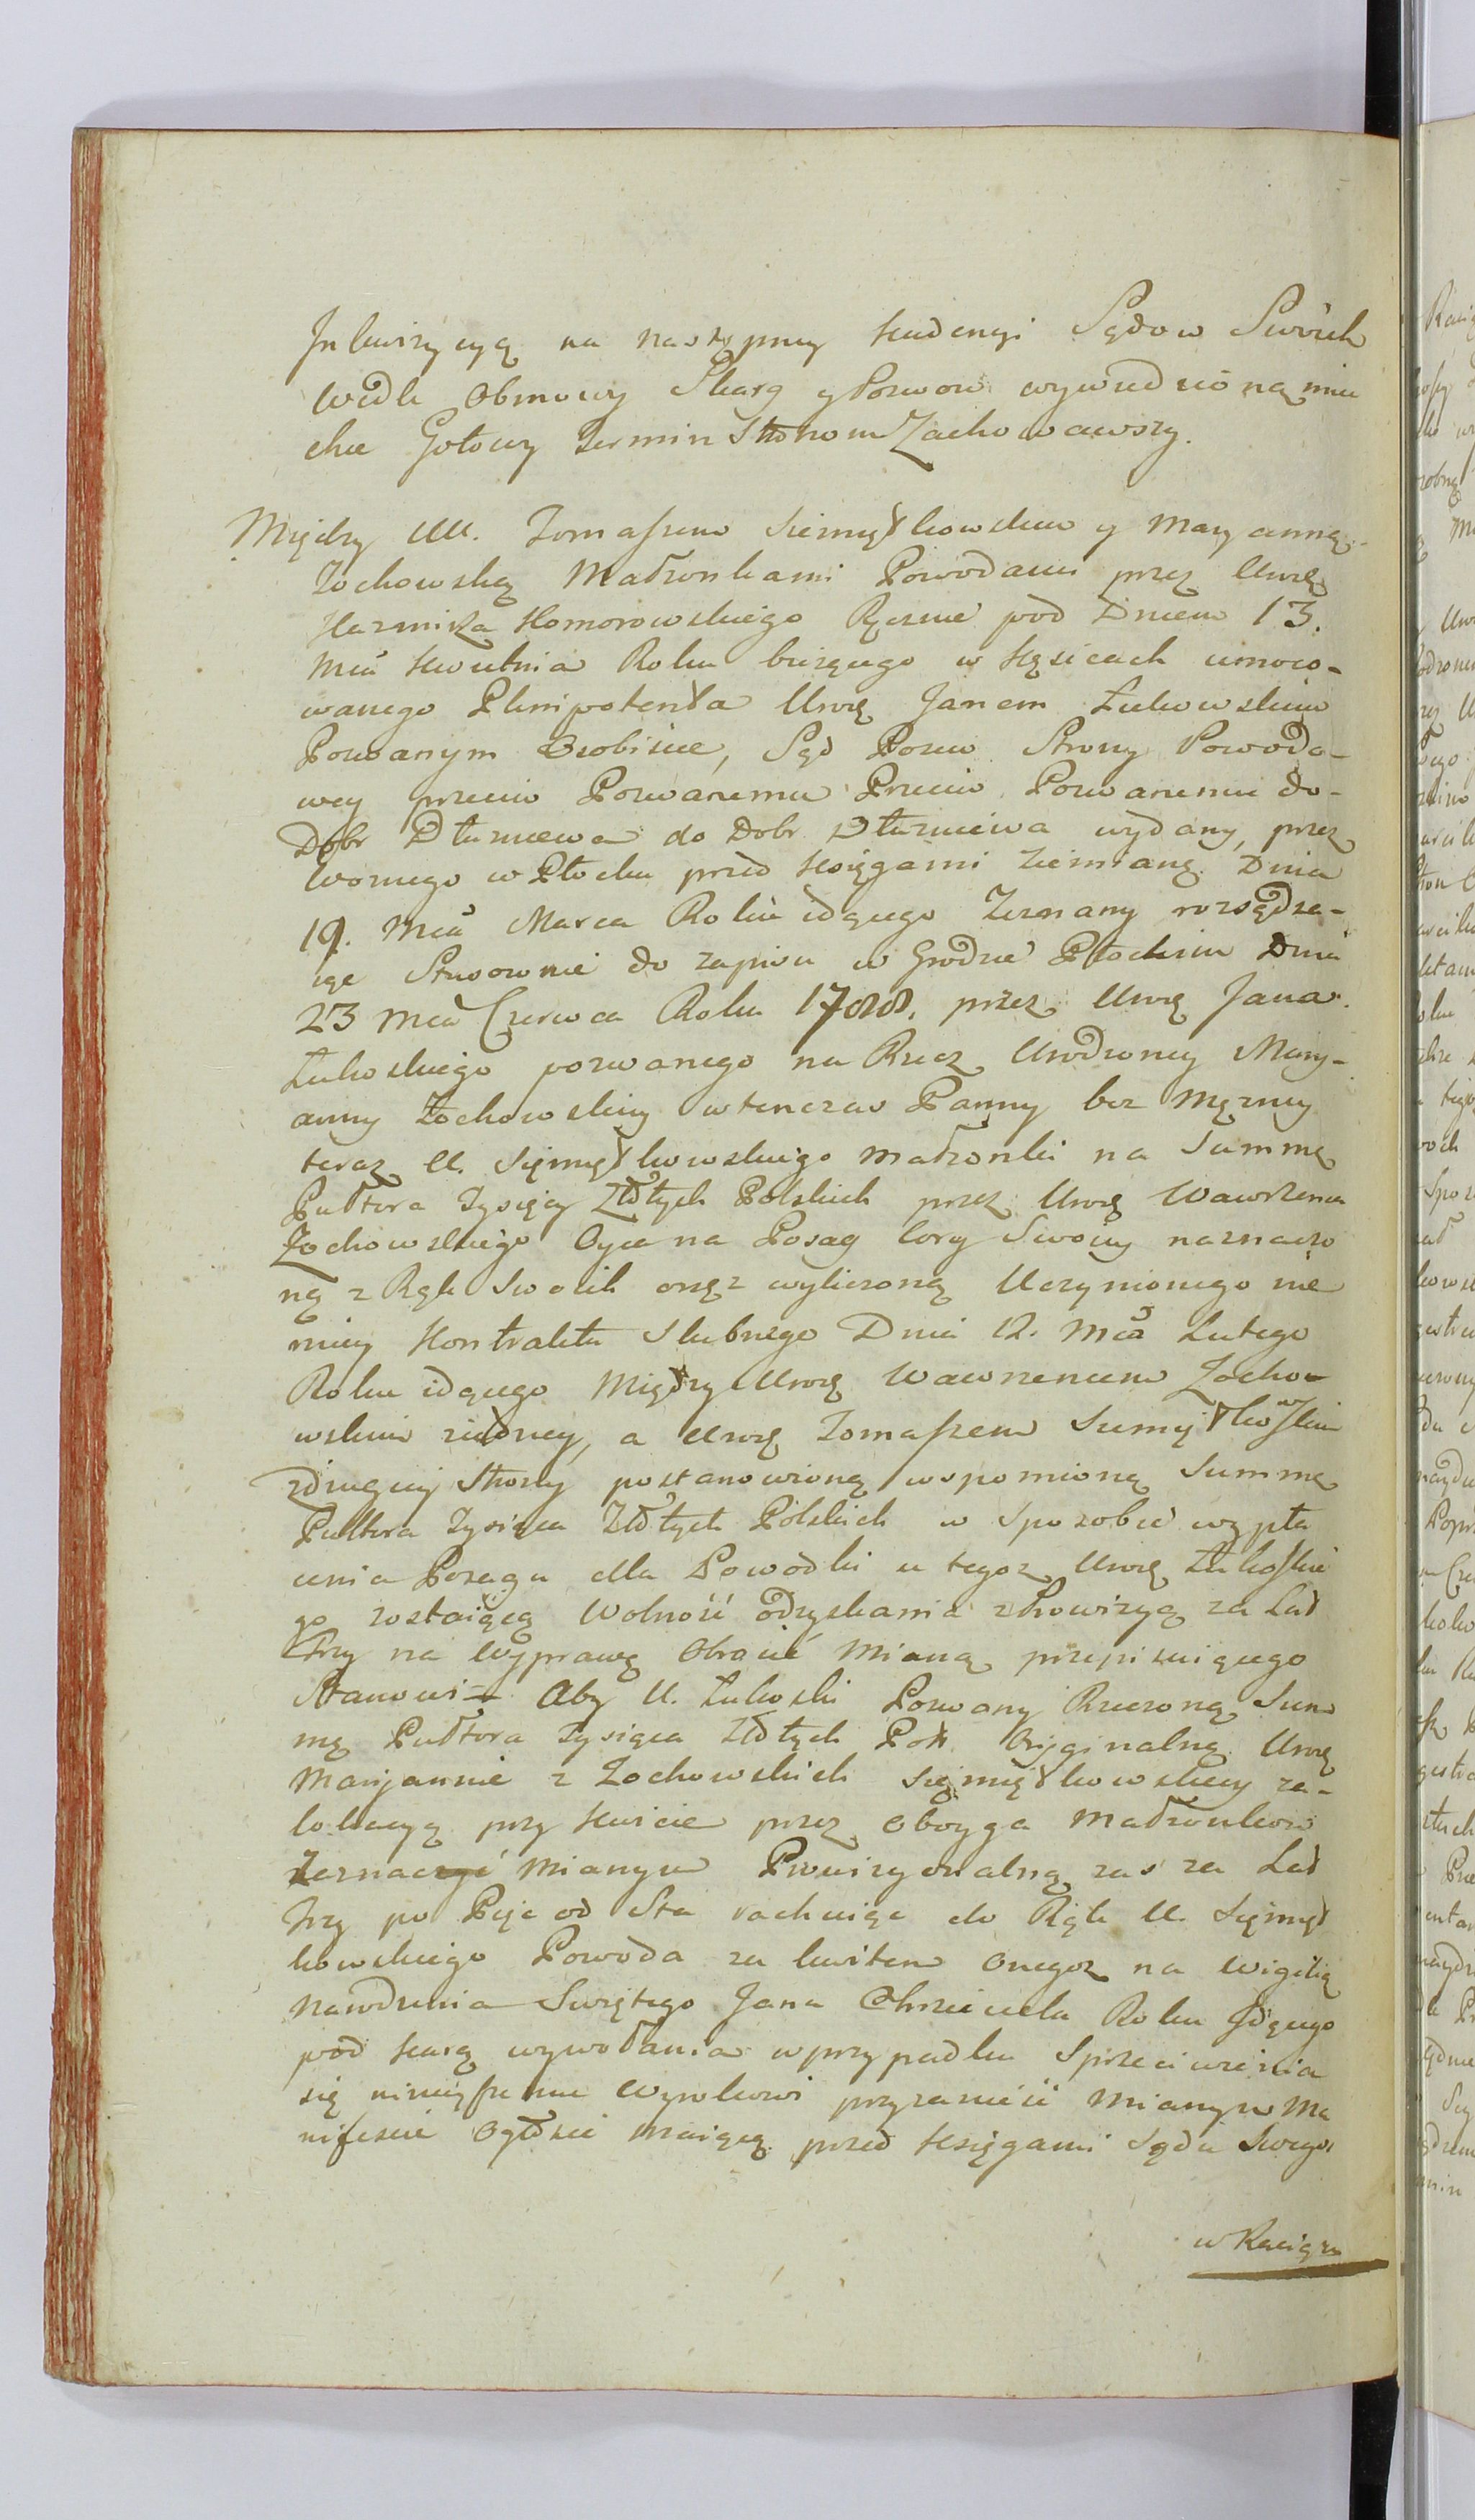 Inkwizycyą na następney Kadencyi Sądow Swoich
Wedle Obmowy Skarg y Pozwow wywiedzioną mieć
chce Gotowy Termin Stronom Zachowawszy.
Między UU. Tomaszem Siemiątkowskim y Maryanną
Zochowską Małżonkami Powodami przez Urnę
Kazmirza Komorowskiego Ręcznie pod Dniem 13.
Mca Kwietnia Roku bieżącego w Kęsicach umoco-
wanego Plenipotenta Urnę Janem Łukowskim
Pozwanym Osobiscie, Sąd Pozew Strony Powodo-
wey przeciw Pozwanemu Przeciw Pozwanemu do
Dobr Dłużniewa do Dobr Dłużniewa wydany, przez
Woznego w Płocku przed Księgami Ziemianą Dnia
19. Mca Marca Roku idącego Zeznany rozsądza-
iąc Stosownie do zapisu w Grodzie Płockim Dnia
23 Mca Czerwca Roku 1788. przez Urnę Jana
Łukoskiego pozwanego na Rzecz Urodzoney Mary-
anny Zochowskiey wtenczas Panny bez Mężney
teraz U. Siemiątkowskiego Małżonki na Summę
Pułtora Tysięcy Złłtych Polskich przez Urnę Wawrzenca
Zochowskiego Oyca na Posag Cory Swoiey naznaczo
ną z Rąk Swoich onąż wyliczoną Uczynionego nie
mniey Kontraktu Slubnego Dnia 12. Mca Lutego
Roku idącego Między Urnę Wawrzencem Zocho-
wskim ziedney, a Urnę Tomaszem Siemiątkowskim
zdrugiey Strony postanowioną wspomnioną Summę
Pułtora Tysiąca Złłtych Polskich w Sposobie wypła
cenia Posagu dla Powodki u tegoż Urnę Łukoskie
go zostaiącą Wolność odzyskania z Prowizyą za Lat
Trzy na Wyprawę Obrocić Mianą przepisuiącego
Stanowi - Aby U. Łukoski Pozwany Rzeczoną Sum
mę Pułtora Tysiąca Złłtych Pol. Oryginalną Urnę
Maryannie z Zochowskich Siemiątkowskiey za-
lokacyą przy Kwicie przez Oboyga Małżonkow
Zeznać Mianym Prowizyonalną zaś za Lat
Trzy po Pięć od Sta rachuiąc do Rąk U. Siemiąt
kowskiego Powoda za kwitem onegoż na Wigilią
Narodzenia Swiętego Jana Chrzciciela Roku Idącego
pod karą wywołania w przypadku Sprzeciwienia
się ninieyszemu Wyrokowi przyzanieść Mianym Ma
nifescie Ogłosić Maiącą przed Księgami Sądu Swego
w Raciążu